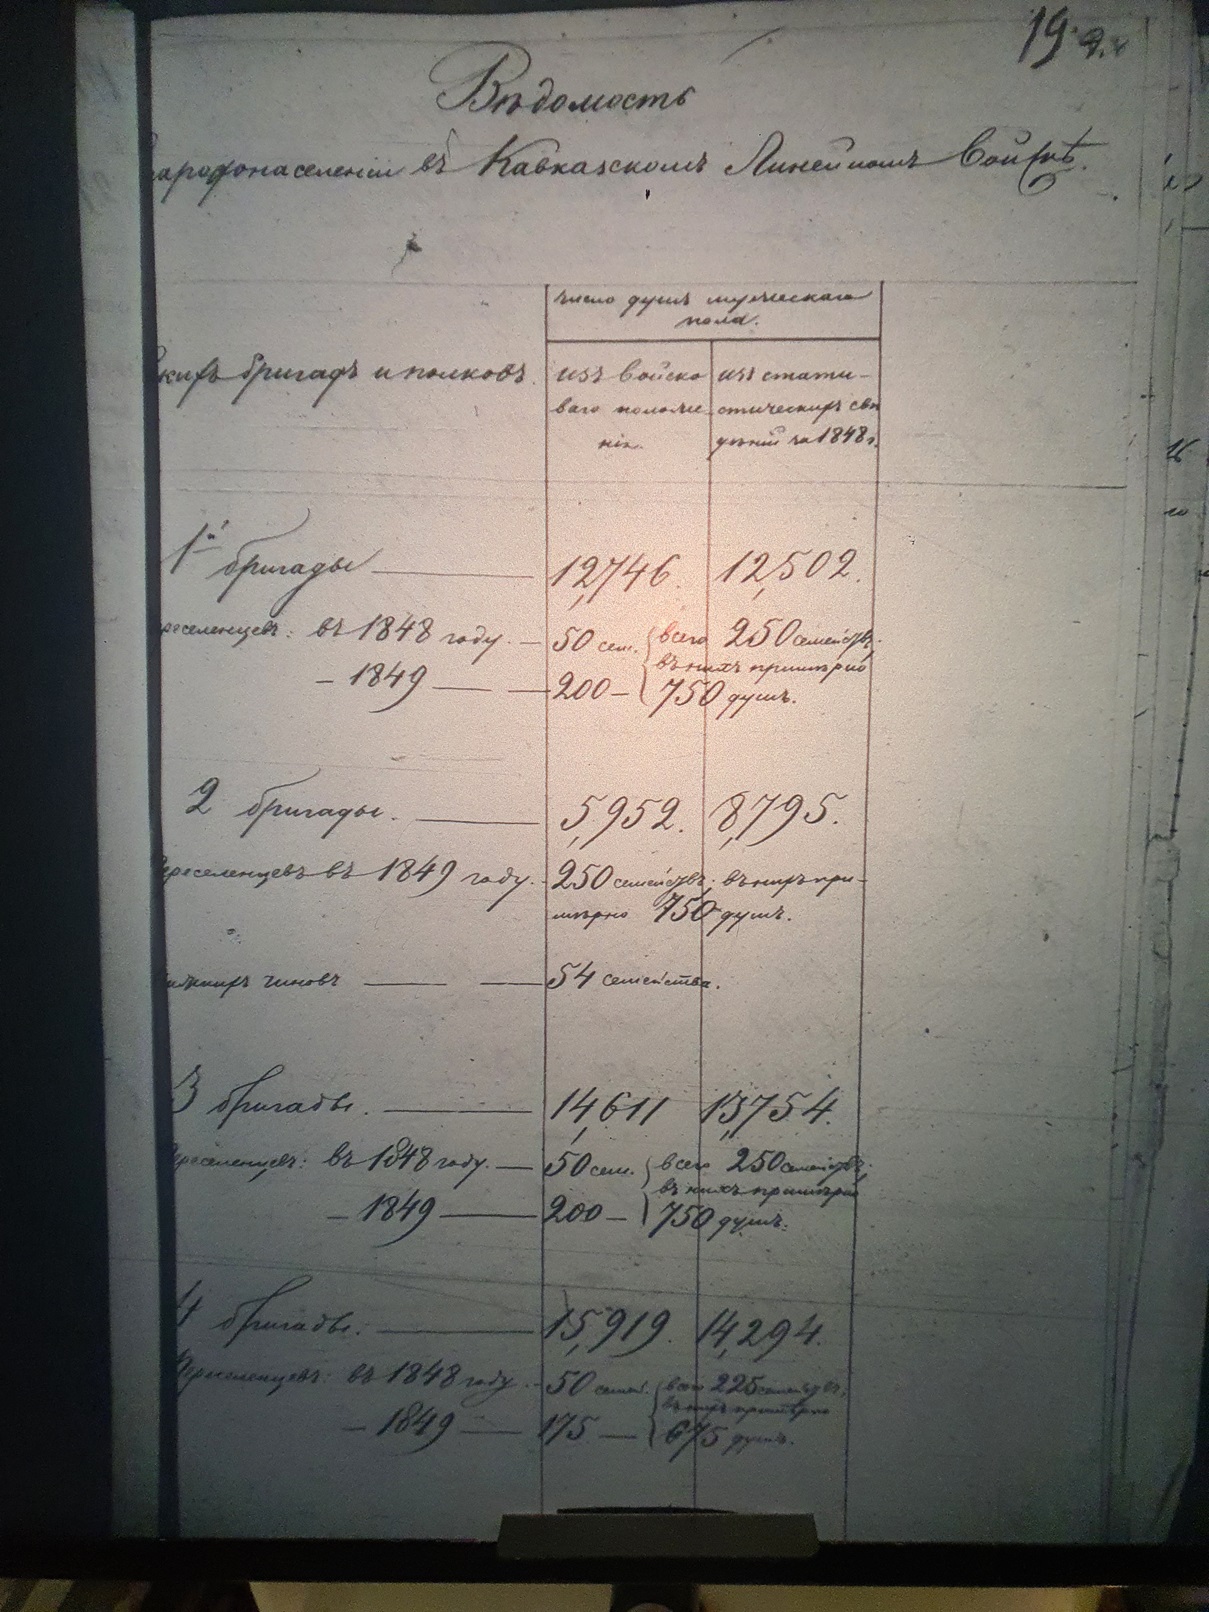 19
Вѣдомость
народонаселенiи въ Кавказскомъ Линейномъ Войскѣ.
число душъ мужескаго
пола.
какихъ бригадъ и полковъ.
изъ войско
ваго положе
нiя.
изъ стати-
стическихъ свѣ
дѣнiй за 1848 г.
1й бригады — 12,746. 12,502.
реселенцевъ: въ 1848 году. — 50 сем. всего 250 семействъ;
въ нихъ примѣрно
— 1849 — — 200 — 750 душъ.
2 бригады. — 5,952. 8,795.
ереселенцевъ въ 1849 году. - 250 семействъ; въ нихъ при-
мѣрно 750 душъ.
нижнихъ чиновъ — — 54 семейства.
3 бригады. — 14,611 13,754.
ереселенцевъ: въ 1848 году. — 50 сем. всего 250 семействъ;
въ нихъ примѣрно
— 1849 — 200 — 750 душъ.
4 бригады. — 15,919. 14,294.
Переселенцевъ: въ 1848 году. - 50 семей. всего 225 семействъ,
въ нихъ примѣрно
— 1849 — 175 — 675 душъ.